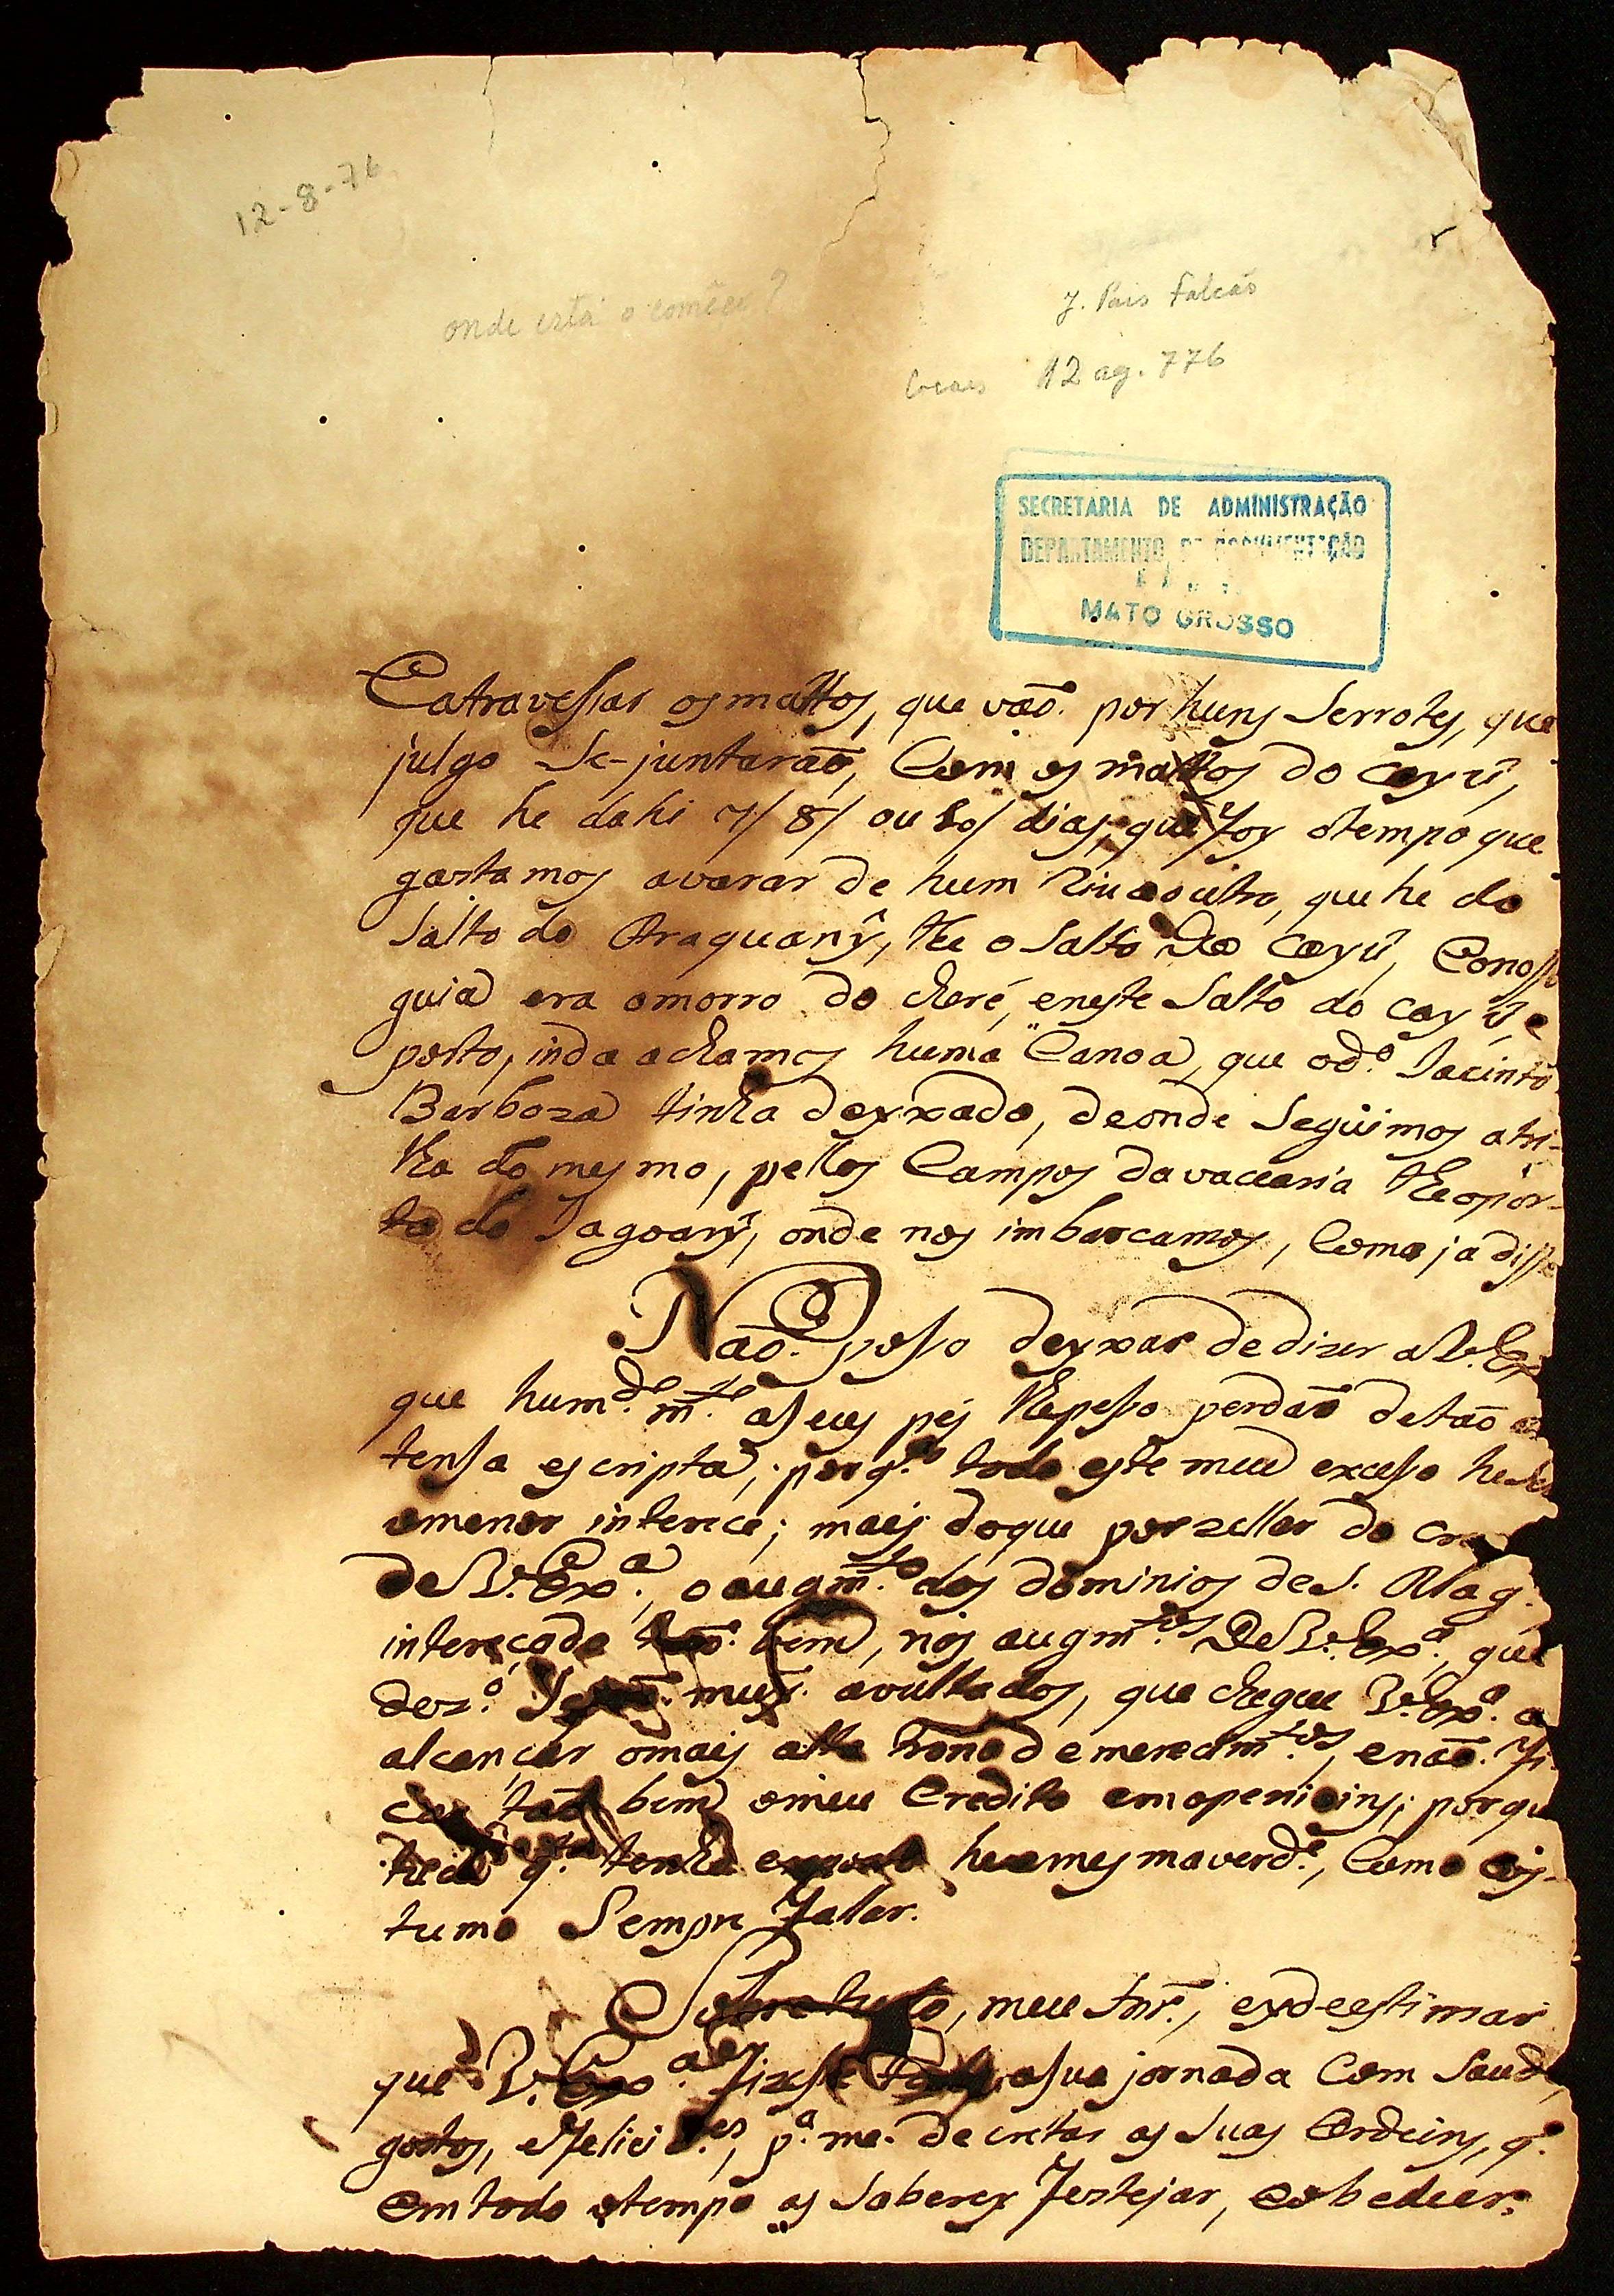 12-8-76
onde está o comêço?
J. Pais Falcão
12 ag. 776
SECRETARIA DE ADMINISTRAÇÃO
DEPARTAMENTO DE DOCUMENTAÇÃO
MATO GROSSO
E atravessar os mattos, que vaõ. por huns Serrotes, que
julgo Se-juntaraõ, Com os mattos do Cayû,
que he dahi 7/ 8/ ou 10/ dias, que foy otempo que
gastamos avarar de hum Riu aoutro, que he do
Salto do Araguanŷ, the o Salto do Cayû, Enosso
guia era omorro do cheré, eneste Salto do Cayû, e
porto, inda achamos huma Canoa, que od.º Jacinto
Barboza tinha deyxado, deonde Seguimos atri-
lha do mesmo, pellos Campos davacaria theopor-
to do Jagoarŷ, onde nos imbarcamos, Como ja disse
Naõ. posso deyxar dedizer aV. Ex
que humd.e m.te aseus pés thepesso perdaõ detaõ
tensa escripta; porq.' todo este meu excesso he
omenor interece; mais doque porzellar do cre
de V. Ex.a, o augm.to dos dominios de S. Mag.
intereçado taõ. bem, nos augm.tos De V. Ex.a, que
dez.º muy. avultados, que chegue V. Ex.a a
alcançar omais alto trono demerecim.tos, enaõ. fi-
car taõ bem omeu Credito emopenioins; porque
q.to tenho heamesmaverd.e, Como cos-
tumo Sempre falar.
Sobretudo, meu Snr., eydeestimar
que V. Ex.a fizesse asua jornada Com Saude,
gostos, efelicid.es, p.a me decretar as Suas Ordeins, q.'
Emtodo otempo as Saberey festejar, eobedecer;